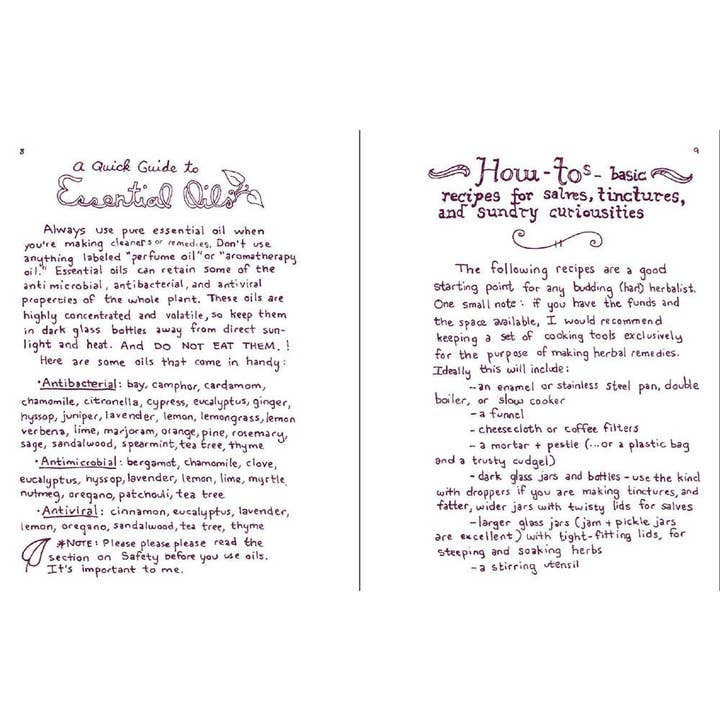 8
a Quick Guide to
Essential Oils
Always use pure essential oil when
you're making cleaners or remedies. Don't use
anything labeled "perfume oil" or "aromatherapy
oil." Essential oils can retain some of the
antimicrobial, antibacterial, and antiviral
properties of the whole plant. These oils are
highly concentrated and volatile, so keep them
in dark glass bottles away from direct sun-
light and heat. And DO NOT EAT THEM.!
Here are some oils that come in handy:
·Antibacterial: bay, camphor, cardamom,
chamomile, citronella, cypress, eucalyptus, ginger,
hyssop, juniper, lavender, lemon, lemongrass, lemon
verbena, lime, marjoram, orange, pine, rosemary,
sage, sandalwood, spearmint, tea tree, thyme
·Antimicrobial: bergamot, chamomile, clove,
eucalyptus, hyssop, lavender, lemon, lime, myrtle,
nutmeg, oregano, patchouli, tea tree
·Antiviral: cinnamon, eucalyptus, lavender,
lemon, oregano, sandalwood, tea tree, thyme
*NOTE: Please please please read the
section on Safety before you use oils.
It's important to me.
9
How-tos - basic
recipes for salves, tinctures,
and sundry curiousities
The following recipes are a good
starting point for any budding (har!) herbalist.
One small note: if you have the funds and
the space available, I would recommend
keeping a set of cooking tools exclusively
for the purpose of making herbal remedies.
Ideally this will include:
-an enamel or stainless steel pan, double
boiler, or slow cooker
-a funnel
-cheesecloth or coffee filters
-a mortar + pestle (...or a plastic bag
and a trusty cudgel)
-dark glass jars and bottles - use the kind
with droppers if you are making tinctures, and
fatter, wider jars with twisty lids for salves
-larger glass jars (jam + pickle jars
are excellent) with tight-fitting lids, for
steeping and soaking herbs
-a stirring utensil